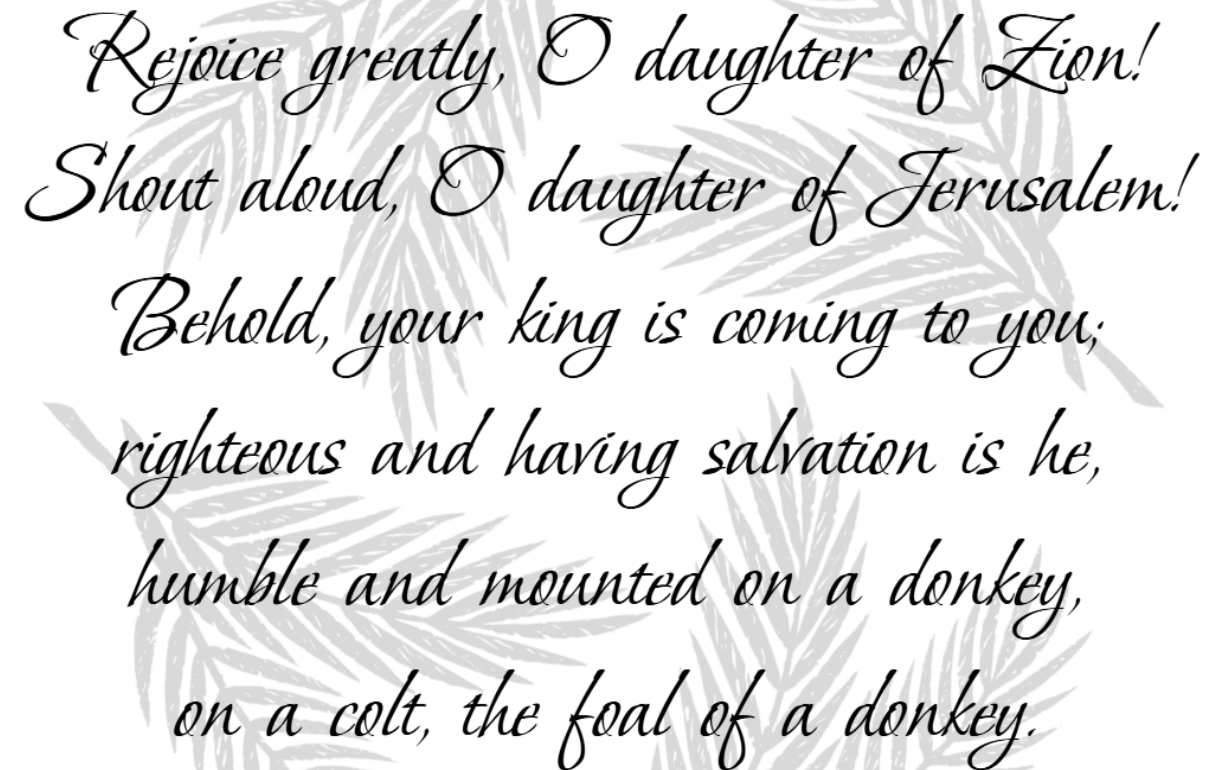 Rejoice greatly, O daughter of Zion!
Shout aloud, O daughter of Jerusalem!
Behold, your king is coming to you;
righteous and having salvation is he,
humble and mounted on a donkey,
on a colt, the foal of a donkey.